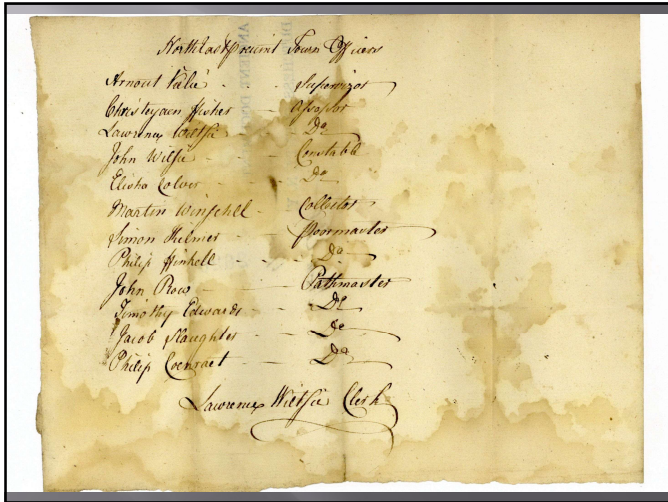 North East Precinct Town Officers
Arnout Viele - - Supervizor
Christeyaen Fisher - Assessor
Lawrence Wiltsie - Do
John Wilsie - - Constable
Elisha Colver - - Do
Martin Winschell - Collector
Simon Helmer - - Poormaster
Philip Finkell - - Do
John Row - - Pathmaster
Timothy Edwards - - Do
Jacob Slaughter - - Do
Philip Coenraet - - Do
Lawrence Wiltsie Clerk